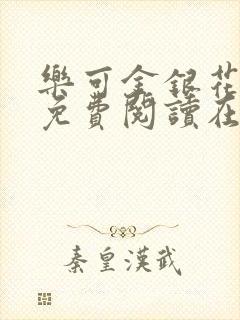 樂可金銀花
免費閱讀在
秦皇漢武